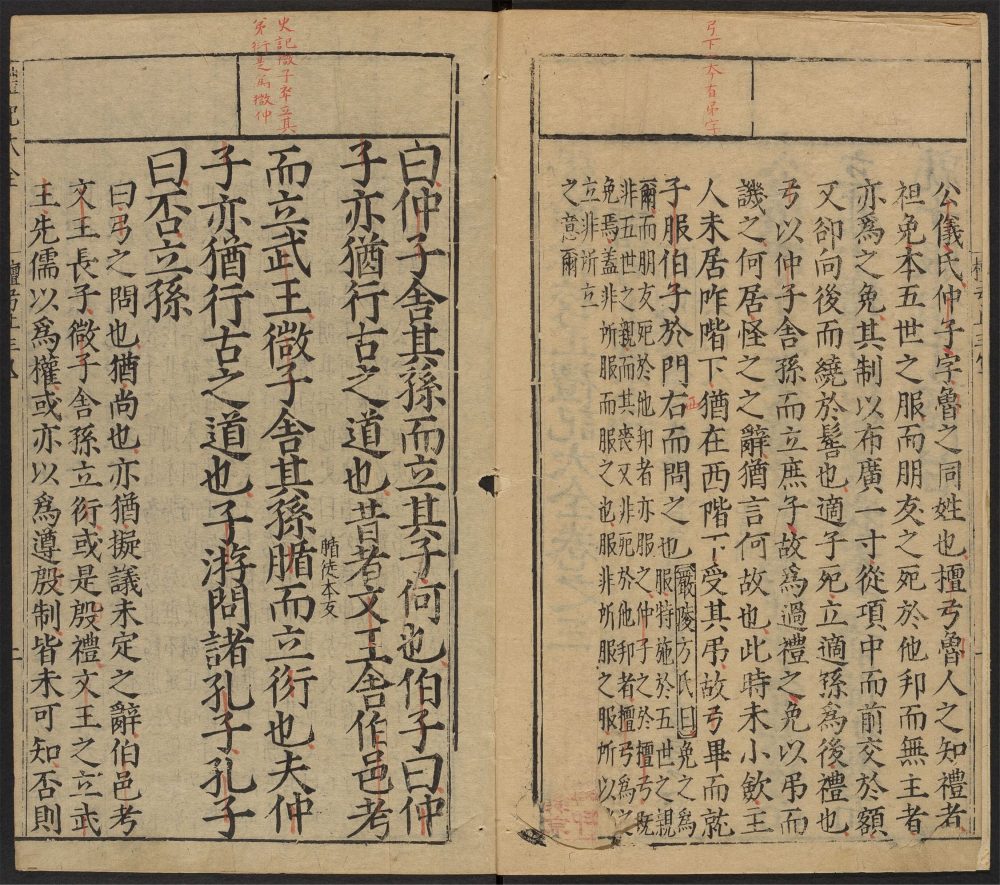 弓下一本有弟字
公儀氏仲子字魯之同姓也檀弓魯人之知禮者
袒免本五世之服而朋友之死於他邦而無主者
亦爲之免其制以布廣一寸從項中而前交於額
又卻向後而繞於髻也適子死立適孫爲後禮也
弓以仲子舍孫而立庶子故爲過禮之免以弔而
譏之何居怪之之辭猶言何故也此時未小歛主
人未居阼階下猶在西階下受其弔故弓畢而就
子服伯子於門右而問之也
嚴陵方氏曰
免之爲
服特施於五世之親
爾而朋友死於他邦者亦服之仲子之於檀弓既
非五世之親而其喪又非死於他邦者檀弓爲之
免焉蓋非所服而服之也服非所服之服所以
立非所立
之意爾
史記微子卒立其
弟衍是爲微仲
曰仲子舍其孫而立其子何也伯子曰仲
子亦猶行古之道也昔者文王舍伯邑考
而立武王微子舍其孫腯而立衍也夫仲
腯徒本友
子亦猶行古之道也子游問諸孔子孔子
曰否立孫
曰弓之問也猶尚也亦猶擬議未定之辭伯邑考
文王長子微子舍孫立衍或是殷禮文王之立武
王先儒以爲權或亦以爲遵殷制皆未可知否則